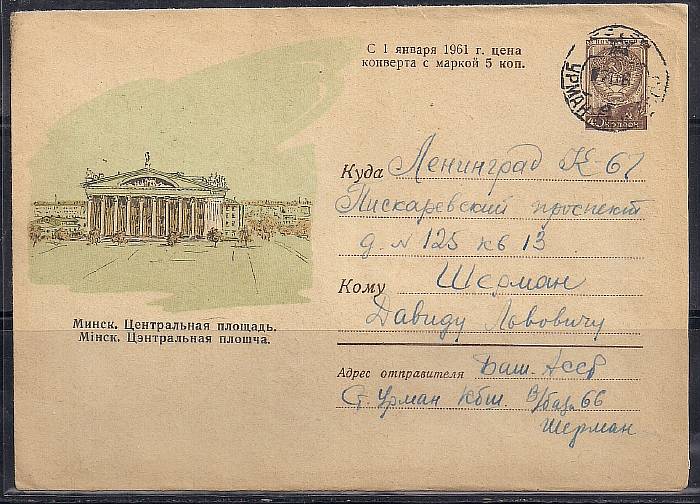 С 1 января 1961 г. цена
конверта с маркой 5 коп.
УРМАН
Куда Ленинград К-67
Пискаревский проспект
д. N 125 кв 13
Кому Шерман
Давиду Львовичу
Минск. Центральная площадь.
Мінск. Цэнтральная плошча.
Адрес отправителя Баш. Асср
Ст. Урман Кбш. в/база 66
Шерман